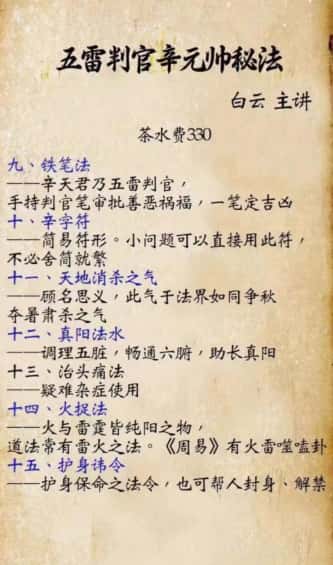 五雷判官辛元帅秘法
白云 主讲
茶水费330
九、铁笔法
——辛天君乃五雷判官，
手持判官笔审批善恶祸福，一笔定吉凶
十、辛字符
——简易符形。小问题可以直接用此符，
不必舍简就繁
十一、天地消杀之气
——顾名思义，此气于法界如同争秋
夺暑肃杀之气
十二、真阳法水
——调理五脏，畅通六腑，助长真阳
十三、治头痛法
——疑难杂症使用
十四、火捉法
——火与雷霆皆纯阳之物，
道法常有雷火之法。《周易》有火雷噬嗑卦
十五、护身讳令
——护身保命之法令，也可帮人封身、解禁